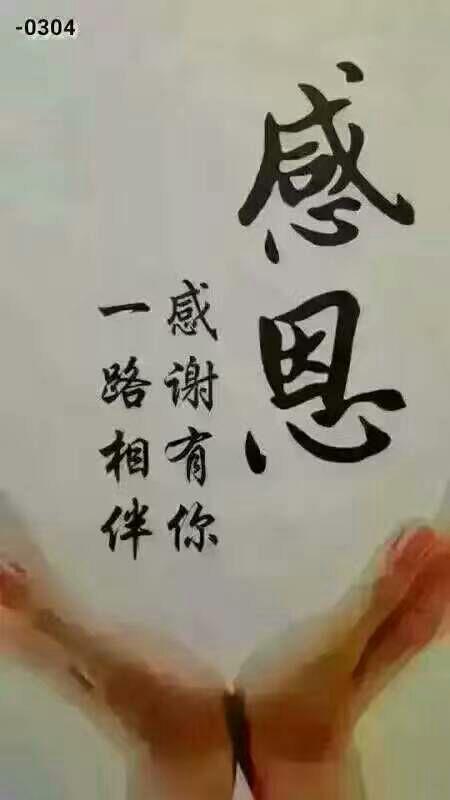 -0304
感恩
感谢有你
一路相伴